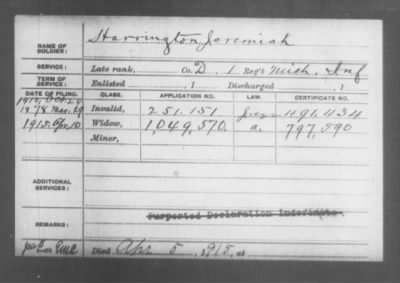 NAME OF
SOLDIER:
Harrington Jeremiah
SERVICE:
Late rank, Co. D, 1 Reg't Mich. Inf
TERM OF
SERVICE:
Enlisted , 1 Discharged , 1
DATE OF FILING. CLASS. APPLICATION NO. LAW. CERTIFICATE NO.
1878 Mar. 29 Invalid, 251.151 491.434
1915. Apr. 10 Widow, 1,049,570. a. 797,590
Minor,
ADDITIONAL
SERVICES:
Purported Declaration Indefinite
REMARKS:
Died Apr 5, 1915, at